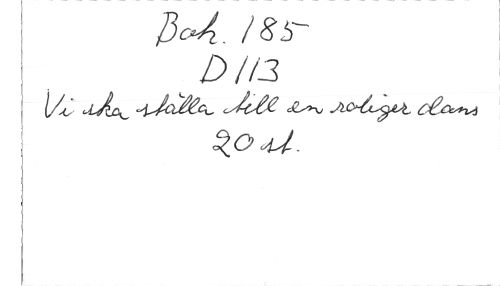 Bok. 185
D 113
Vi ska ställa till en roliger dans
20 st.